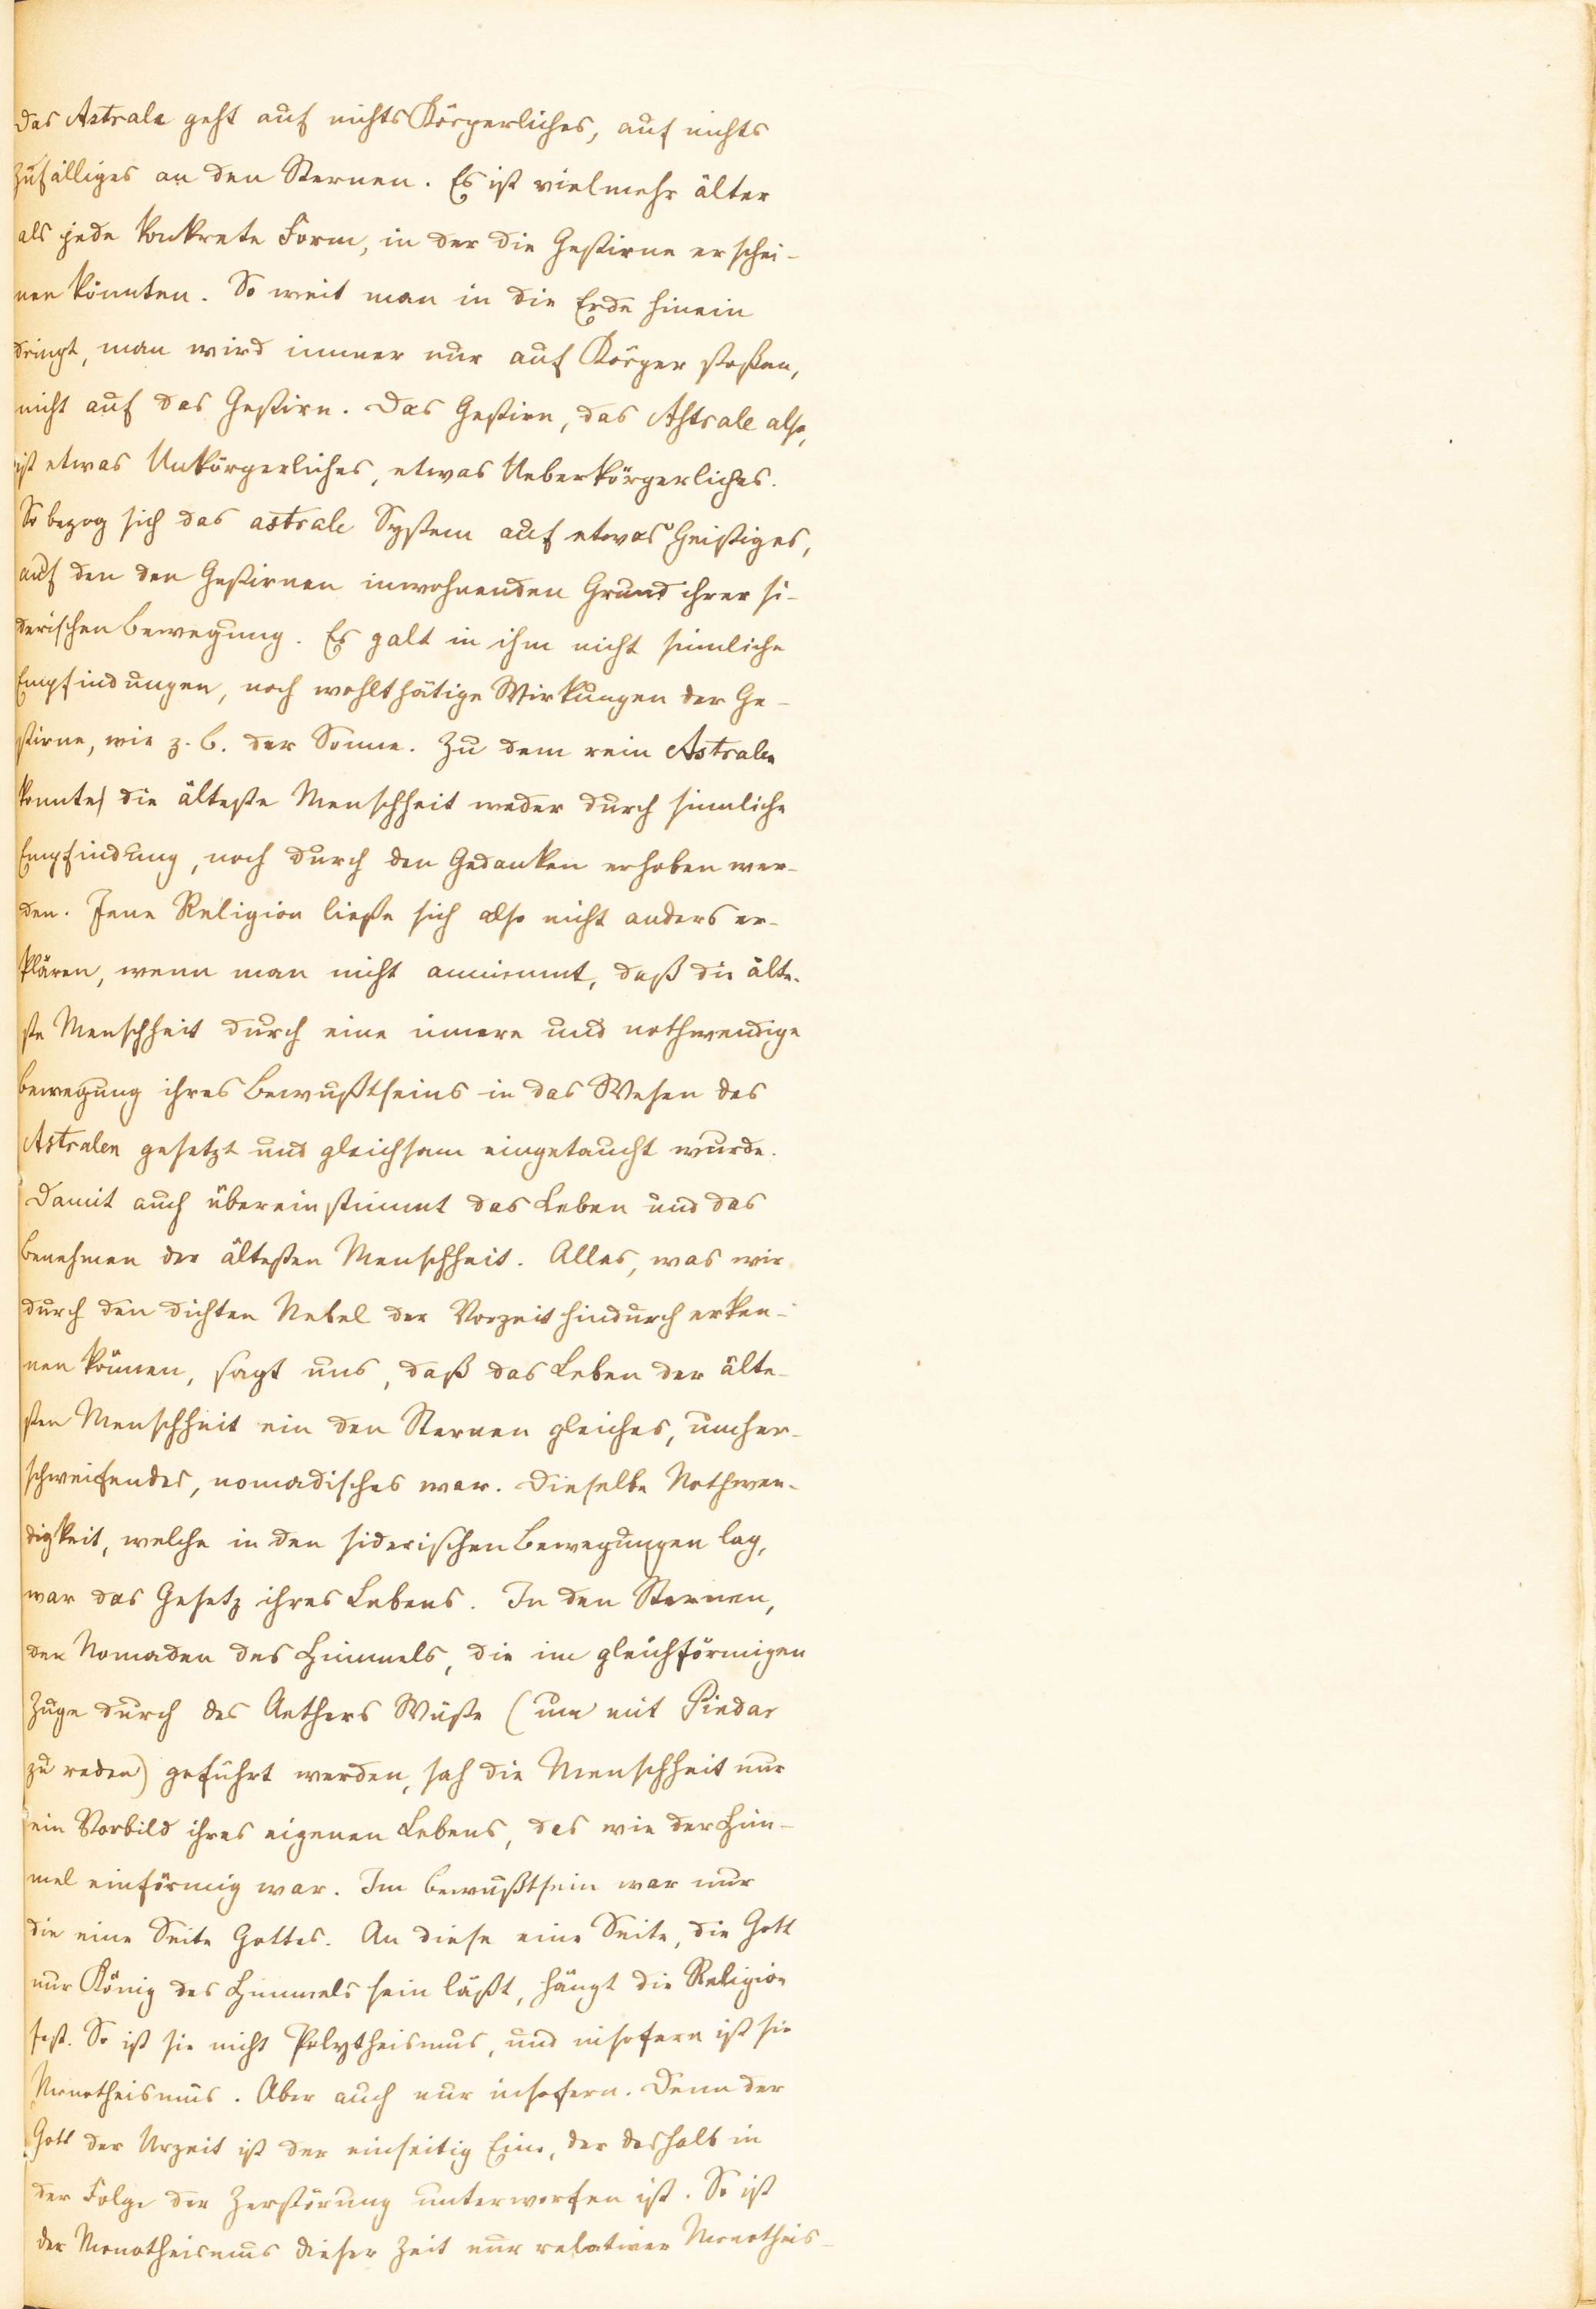 Das Astrale geht auf nichts Körperliches, auf nichts
Zufälliges an den Sternen. Es ist vielmehr älter
als jede konkrete Form, in der die Gestirne erschei-
nen könnten. So weit man in die Erde hinein
dringt, man wird immer nur auf Körper stoßen,
nicht auf das Gestirn. Das Gestirn, das Astrale also,
ist etwas Unkörperliches, etwas Ueberkörperliches.
So bezog sich das astrale System auf etwas Geistiges,
auf den den Gestirnen inwohnenden Grund ihrer si-
derischen Bewegung. Es galt in ihm nicht sinnliche
Empfindungen, noch wohlthätige Wirkungen der Ge-
stirne, wie z. B. der Sonne. Zu dem rein Astralen
konnte die älteste Menschheit weder durch sinnliche
Empfindung, noch durch den Gedanken erhoben wer-
den. Jene Religion ließe sich also nicht anders er-
klären, wenn man nicht annimmt, daß die älte-
ste Menschheit durch eine innere und nothwendige
Bewegung ihres Bewußtseins in das Wesen des
Astralen gesetzt und gleichsam eingetaucht wurde.
Damit auch übereinstimmt das Leben und das
Benehmen der ältesten Menschheit. Alles, was wir
durch den dichten Nebel der Vorzeit hindurch erken-
nen können, sagt uns, daß das Leben der älte-
sten Menschheit ein den Sternen gleiches, umher-
schweifendes, nomadisches war. Dieselbe Nothwen-
digkeit, welche in den siderischen Bewegungen lag,
war das Gesetz ihres Lebens. In den Sternen,
den Nomaden des Himmels, die im gleichförmigen
Zuge durch des Aethers Wüste (um mit Pindar
zu reden) geführt werden, sah die Menschheit nur
ein Vorbild ihres eigenen Lebens, das wie der Him-
mel einförmig war. Im Bewußtsein war nur
die eine Seite Gottes. An diese eine Seite, die Gott
nur König des Himmels sein läßt, hängt die Religion
fest. So ist sie nicht Polytheismus, und insofern ist sie
Monotheismus. Aber auch nur insofern. Denn der
Gott der Urzeit ist der einseitig Eine, der deshalb in
der Folge der Zerstörung unterworfen ist. So ist
der Monotheismus dieser Zeit nur relativer Monotheis-